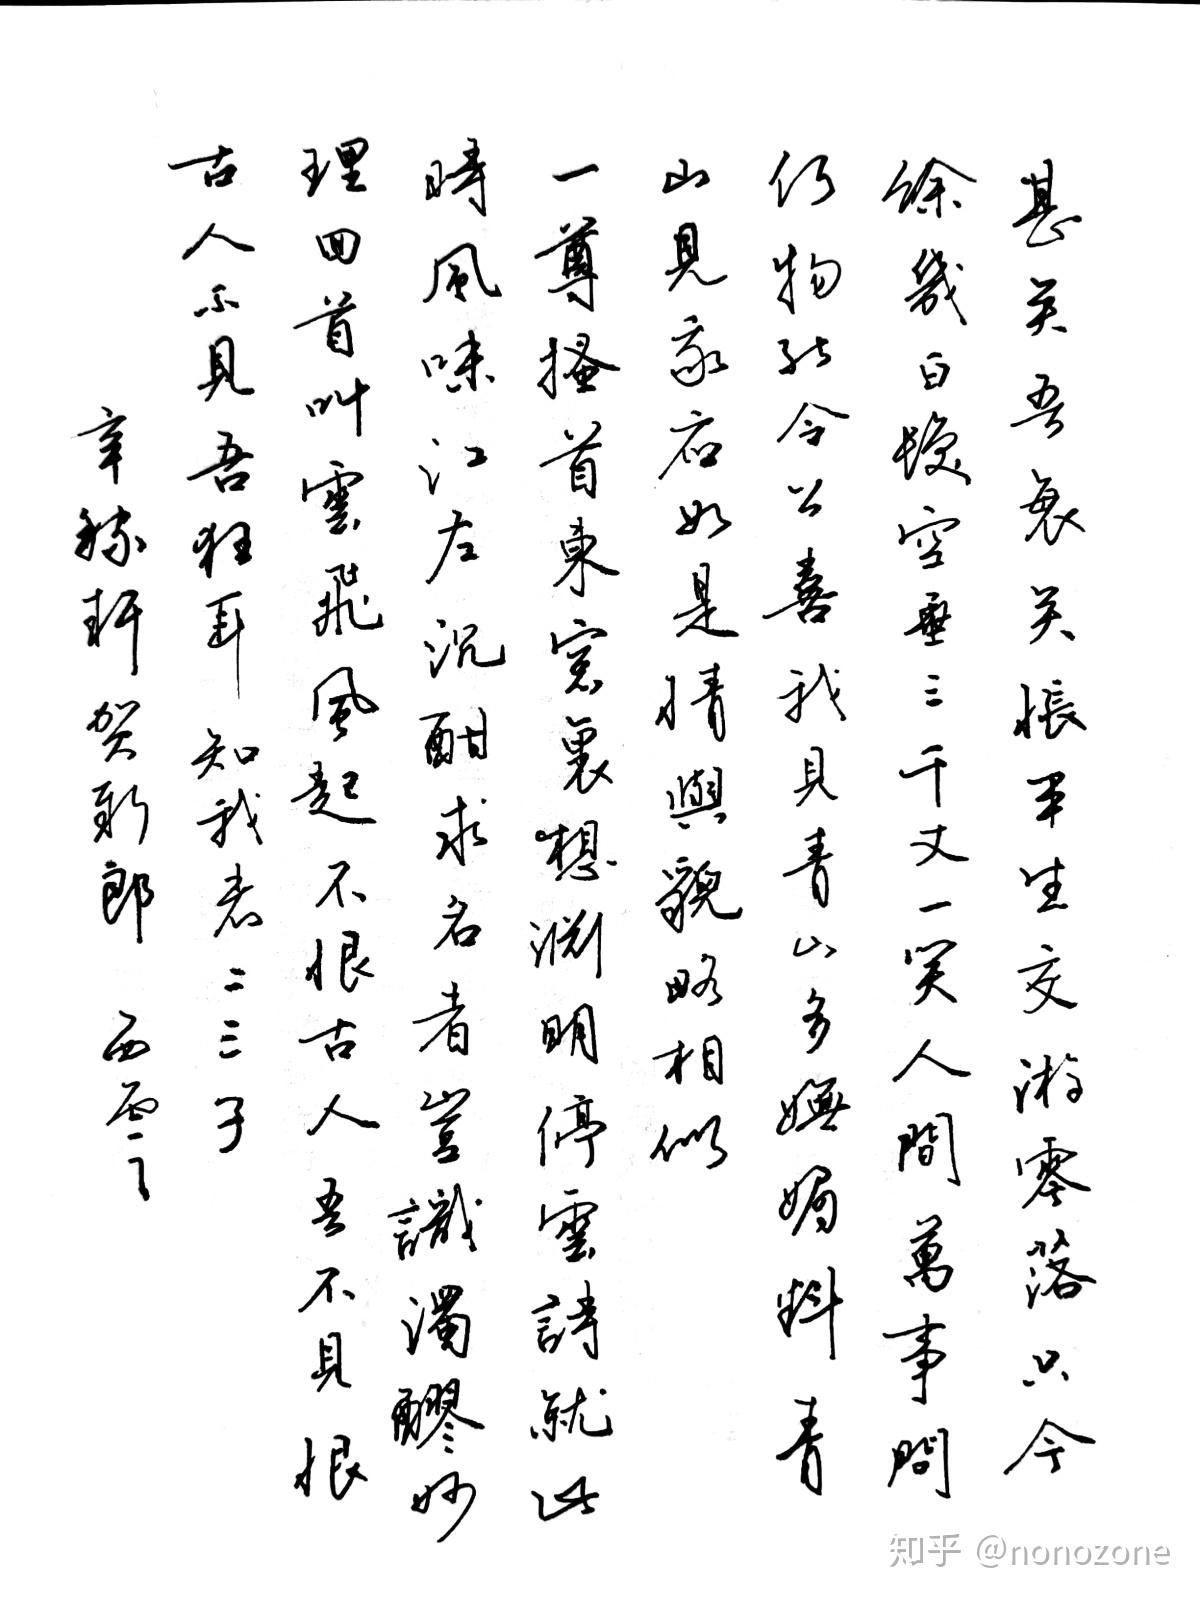 甚矣吾衰矣悵平生交游零落只今
餘幾白髮空垂三千丈一笑人間萬事問
何物能令公喜我見青山多嫵媚料青
山見我應如是情與貌略相似
一尊搔首東窓裏想淵明停雲詩就此
時風味江左沉酣求名者豈識濁醪妙
理回首叫雲飛風起不恨古人吾不見恨
古人不見吾狂耳知我者二三子
辛稼軒賀新郎 西雲
知乎 @nonozone